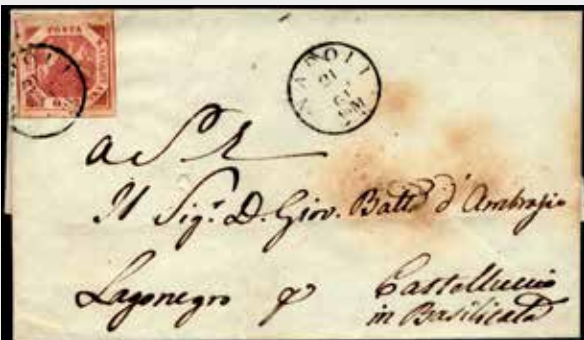 POSTA
NAPOLI
a S. E.
Il Sigr. D. Giov. Batta d'Ambrosio
Lagonegro p Castelluccio
in Basilicata